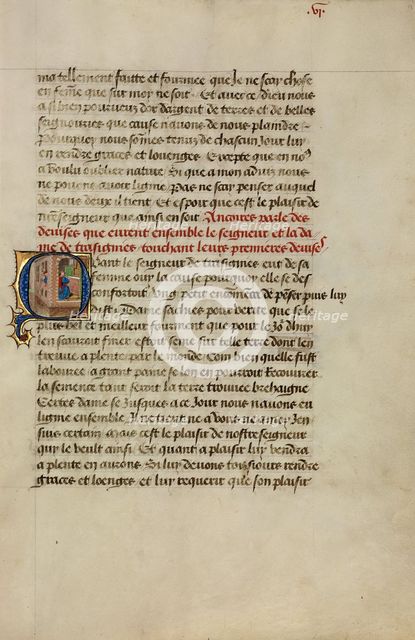 .vi.
ma tellement faitte et fourmee que Je ne scay chose
en femme que sur moy ne soit. Et avec ce dieu nous
a si bien pourveuz dor dargent de terres et de belles
seignouries que cause navons de nous plaindre.
Pourquoy nous sommes tenus de chascun Jour luy
en rendre graces et louenges. Excepte que en no9
a voulu oublier nature. Si que a mon advis nous
ne povons avoir ligne. Pas ne scay penser auquel
de nous deux il tient. Et espoir que cest le plaisir de
nreseigneur que ainsi en soit. Ancores parle des
devises que eurent ensemble le seigneur et la da
me de trasignies touchant leurs premieres devises
Quant le seigneur de trasignies eut de sa
femme ouy la cause pourquoy elle se des
confortoit Ung petit encomenca de peser puis luy
dist. Dame sachies pour verite que se le
plus bel et meilleur fourment que pour le Jo' dhuy
len scauroit finer estoit seme sur telle terre dont len
treuve a plente par le monde. Combien quelle fust
labouree a grant paine se lon en pourroit Recouvrer
la semence tant seroit la terre trouvee brehaigne
Certes dame se Jusques a ce Jour nous navons eu
ligne ensemble Il ne tient ne a vous ne a moy Jen
suis certain Mais cest le plaisir de nostreseigneur
qui le veult ainsi Et quant a plaisir luy vendra
a plente en aurons. Si luy devons tousiours rendre
graces et loenges et luy requerir que son plaisir
Heritage
Heritage